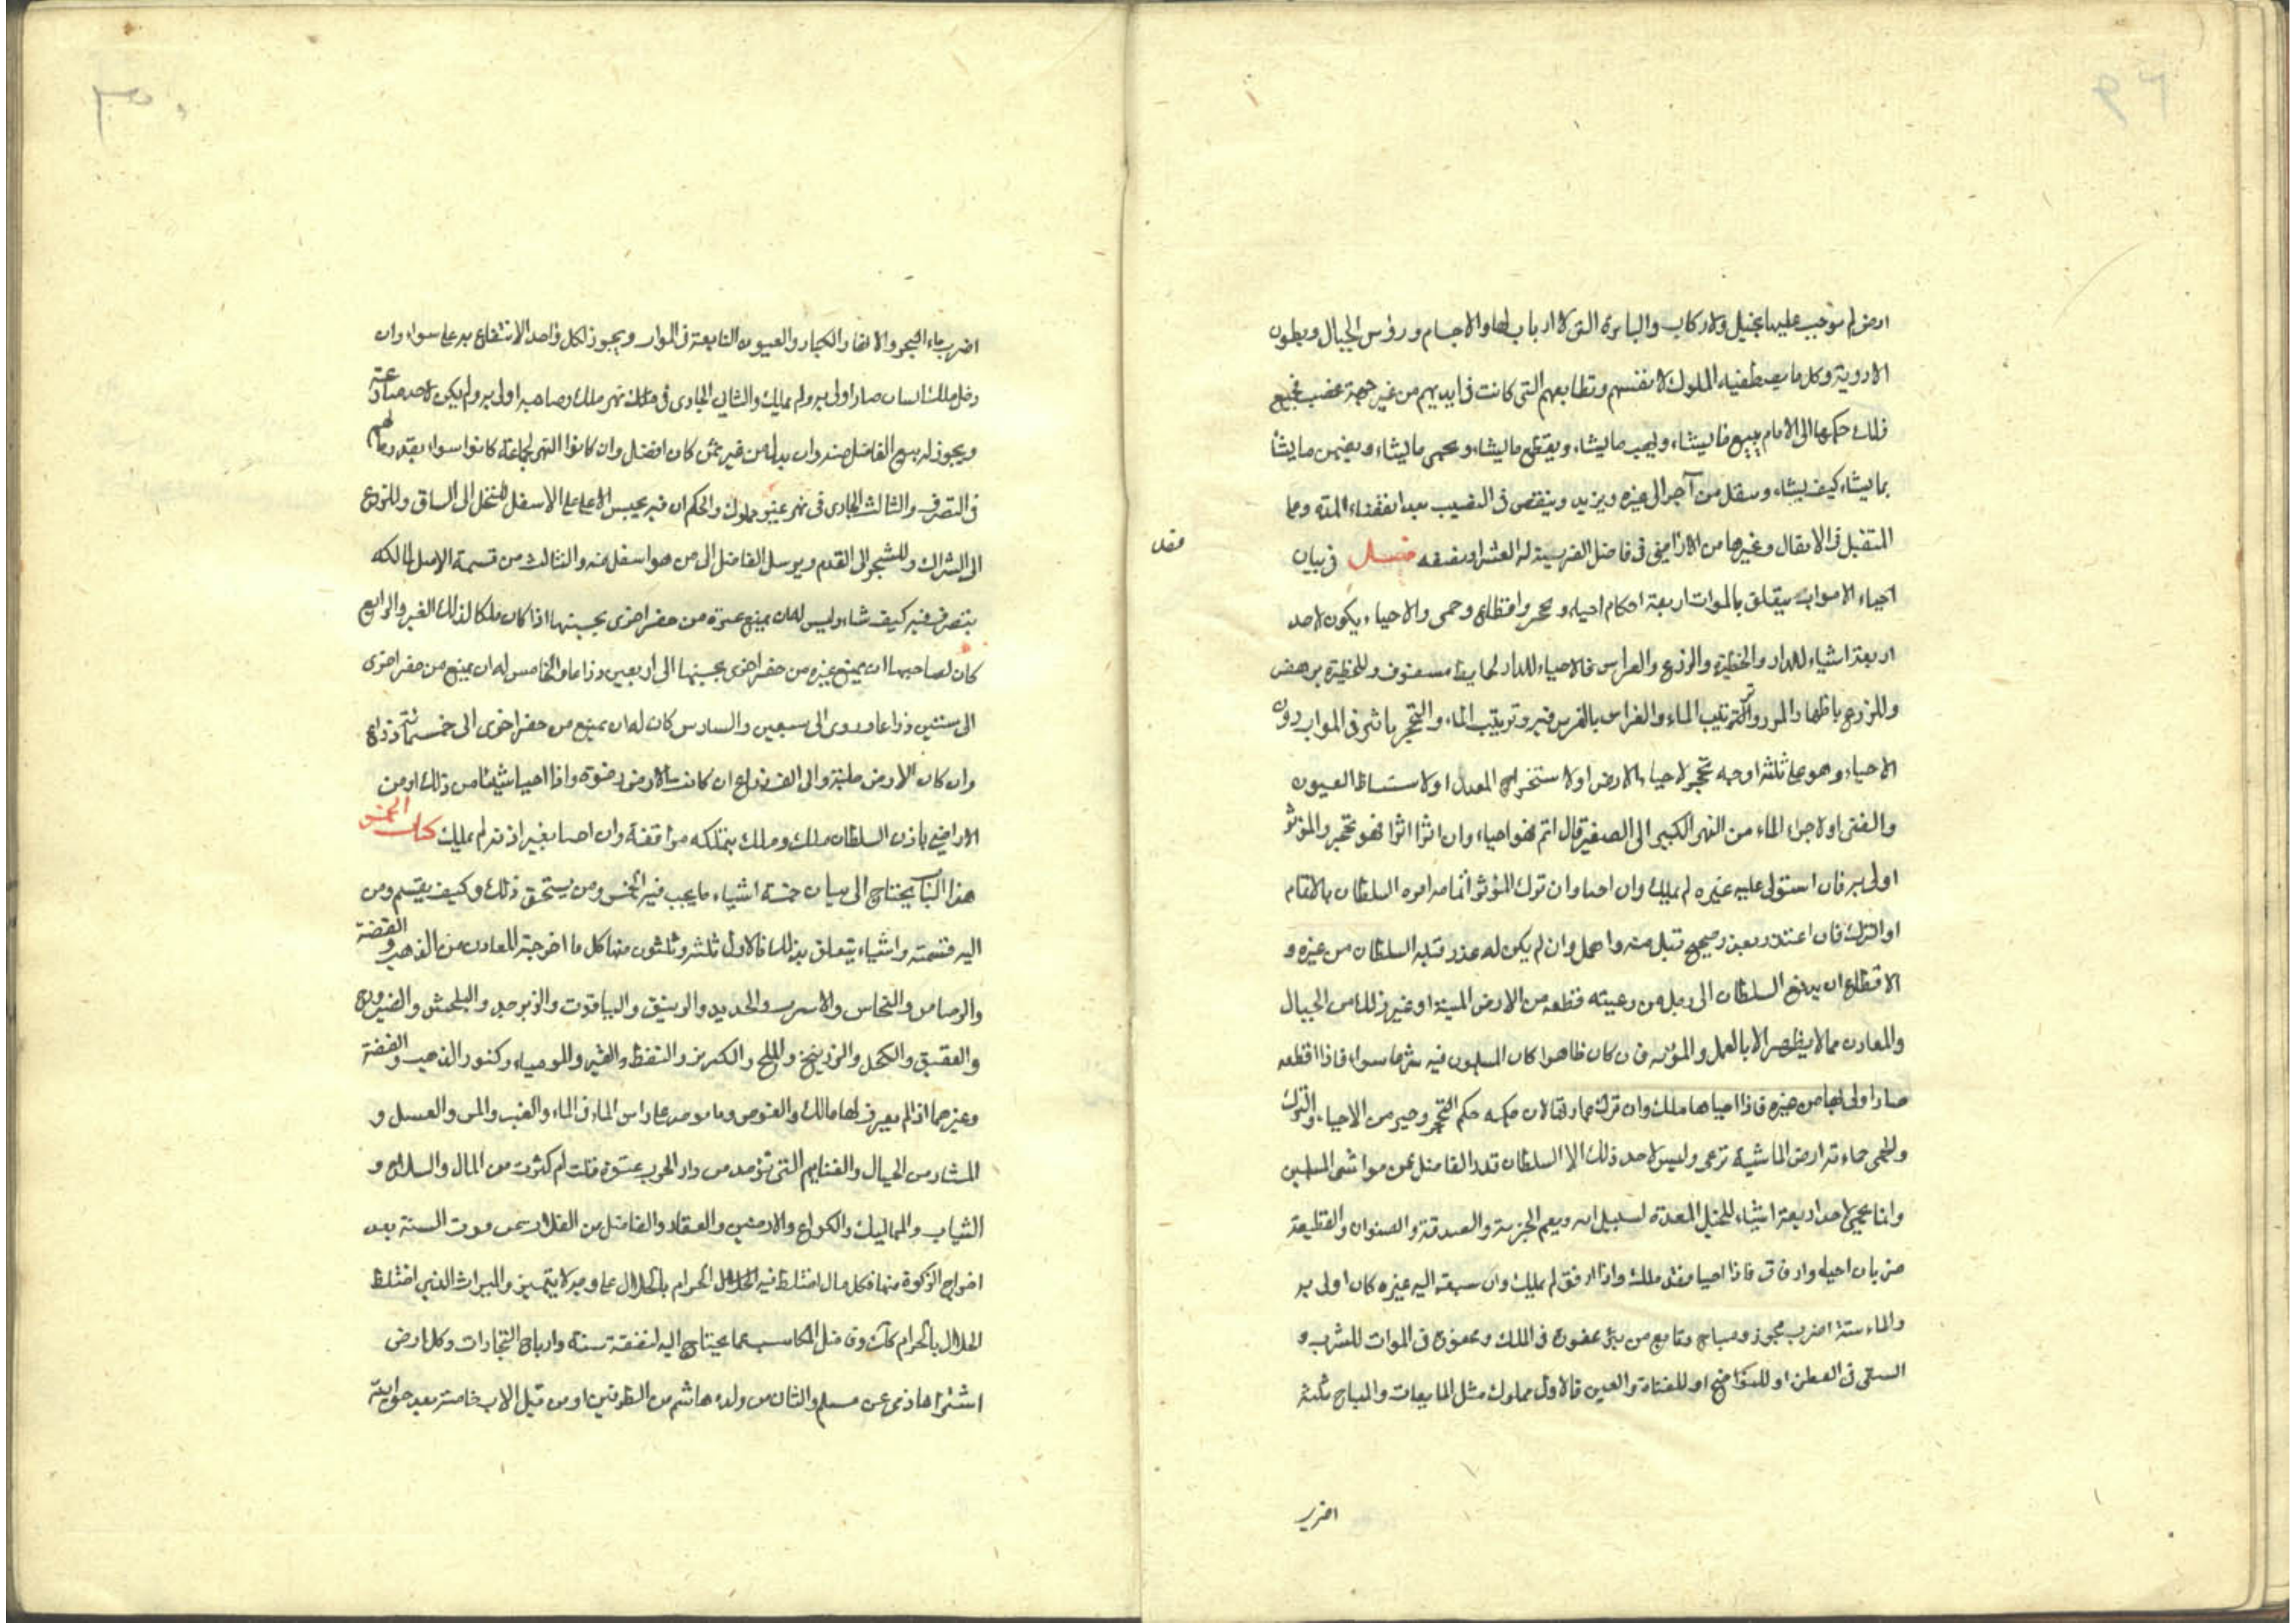 ارض لم توجب عليها بخيل ولا ركاب والبايرة التى لا ارباب لها والاجام ورؤس الجبال وبطون
الاودية وكل ما يصطفيه الملوك لانفسهم وقطايعهم التى كانت فى ايديهم من غير جهة غصب فجميع
ذلك حكمها الى الامام يبيع ما يشاء ويهب ما يشاء ويقطع ما يشاء ويحمى ما يشاء ويضمن ما يشا
بما يشاء كيف يشاء وينقل من آخر الى غيره ويزيد وينقص فى النصيب بعد انقضاء المدة وما
المتقبل فى الانفال وغيرها من الاراضى فى فاضل الضريبة له العشر او نصفه فصل فى بيان
احياء الاموات يتعلق بالموات اربعة احكام احياء وتحجر واقطاع وحمى والاحياء يكون لاحد
اربعة اشياء للدار والحظيرة والزرع والغراس فالاحياء للدار بحايط مسقوف وللحظيرة بر بعض
وللزرع باظهار المرور والترتيب الماء والغراس بالغرس فيه وترتيب الماء والتحجر باثر فى الموات دون
الاحياء وهو على ثلثة اوجه تحجر لاحياء الارض او لاستخراج المعدن او لاستنباط العيون
والقنى او لاجراء الماء من النهر الكبير الى الصغير قال اتم فهو احياء وان اثرا اثرا فهو تحجر والمؤثر
اولى به فان استولى عليه غيره لم يملك وان احيا وان ترك المؤثر اتمامه امره السلطان بالاتمام
او الترك فان اعتذر بعذر صحيح قبل منه وامهل وان لم يكن له عذر قبله السلطان من غيره و
الاقطاع ان يدفع السلطان الى رجل من رعيته قطعة من الارض الميتة او غير ذلك من الجبال
والمعادن مما لا يظهر الا بالعمل والمؤنة فان كان ظاهرا كان المسلمون فيه شرعا سواء فاذا اقطعه
صار اولى بها من غيره فاذا احياها ملك وان ترك عمارتها لان حكمه حكم التحجر وخير من الاحياء والترك
والحمى حماء قدر ارض الماشية ترعى وليس لاحد ذلك الا السلطان قدر الفاضل عن مواشى المسلمين
وانما يحمى لاحد اربعة اشياء للخيل المعدة لسبيل الله ونعم الجزية والصدقة والصنوان والقطيعة
ضربان احياء وارفاق فاذا احيا فقد ملك واذا ارفق لم يملك وان سبقه اليه غيره كان اولى به
والماء ستة اضرب مجوز ومباح ونابع من بئر محفورة فى الملك ومحفورة فى الموات للشرب و
السقى فى العطن او للنواضح او للقناة والعين فالاول مملوك مثل المايعات والمباح ثلثة
اضرب
فصل
اضرب ماء البحر والانهار الكبار والعيون النابعة فى الموات ويجوز لكل واحد الانتفاع به على سواء وان
دخل ملك انسان صار اولى به ولم يملك والثانى الجارى فى ملك نهر ملك وصاحبه اولى به ولم يكن لاحد منازعته
ويجوز له بيع الفاضل منه وان بذله من غير ثمن كان افضل وان كانوا النهر لجماعة كانوا سواء بقدر مالهم
فى التصرف والثالث الجارى فى نهر غير مملوك والحكم ان فيه يحبس الاعلى على الاسفل للنخل الى الساق وللزرع
الى الشراك وللشجر الى القدم ويرسل الفاضل الى من هو اسفل منه والثالث من قسمة الاصل لمالكه
يتصرف فيه كيف شاء وليس له ان يمنع غيره من حفر اخرى بجنبها اذا كان ملكا لذلك الغير والرابع
كان لصاحبها ان يمنع غيره من حفر اخرى بجنبها الى اربعين ذراعا والخامس له ان يمنع من حفر اخرى
الى ستين ذراعا وروى الى سبعين والسادس كان له ان يمنع من حفر اخرى الى خمسمائة ذراع
وان كان الارض صلبة والى الف ذراع ان كانت الارض رخوة واذا احيا شيئا من ذلك او من
الاراضى باذن السلطان ملك وملك بتملكه مرافقه وان احيا بغير اذنه لم يملك كتاب الخمس
هذا الباب يحتاج الى بيان خمسة اشياء ما يجب فيه الخمس ومن يستحق ذلك وكيف يقسم ومن
اليه قسمته واشياء يتعلق بذلك فالاول ثلثة وثلثون منها كل ما اخرجته المعادن من الذهب والفضة
والرصاص والنحاس والاسرب والحديد والزيبق والياقوت والزبرجد والبلخش والفيروزج
والعقيق والكحل والزرنيخ والملح والكبريز والنفط والقير والموميا وكنوز الذهب والفضة
وغيرهما اذا لم يعرف لها مالك والغوص وما يوجد على راس الماء فى الماء والعنبر والمن والعسل و
المشار من الجبال والغنايم التى تؤخذ من دار الحرب عنوة قلت لم كثرت من المال والسلاح و
الثياب والمماليك والكراع والارضين والعقار والفاضل من الغلات من قوت السنة بعد
اخراج الزكوة منها وكل مال اختلط فيه الحلال الحرام بالحلال على وجه لا يتميز والميراث الذى اختلط
الحلال بالحرام كذلك وفاضل المكاسب عما يحتاج اليه لنفقة سنة وارباح التجارات وكل ارض
اشتراها ذمى من مسلم والثانى من ولده هاشم من الطرفين او من قبل الاب خاصة بعد حرابة